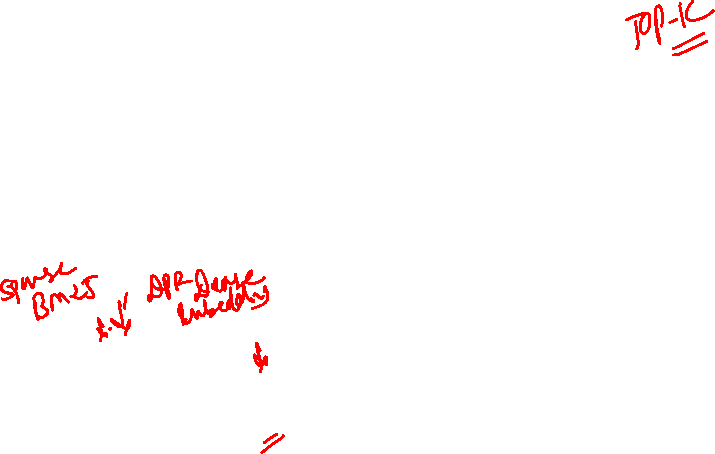 TOP-K
Sparse
BM25
DPR-Dense
Embedding